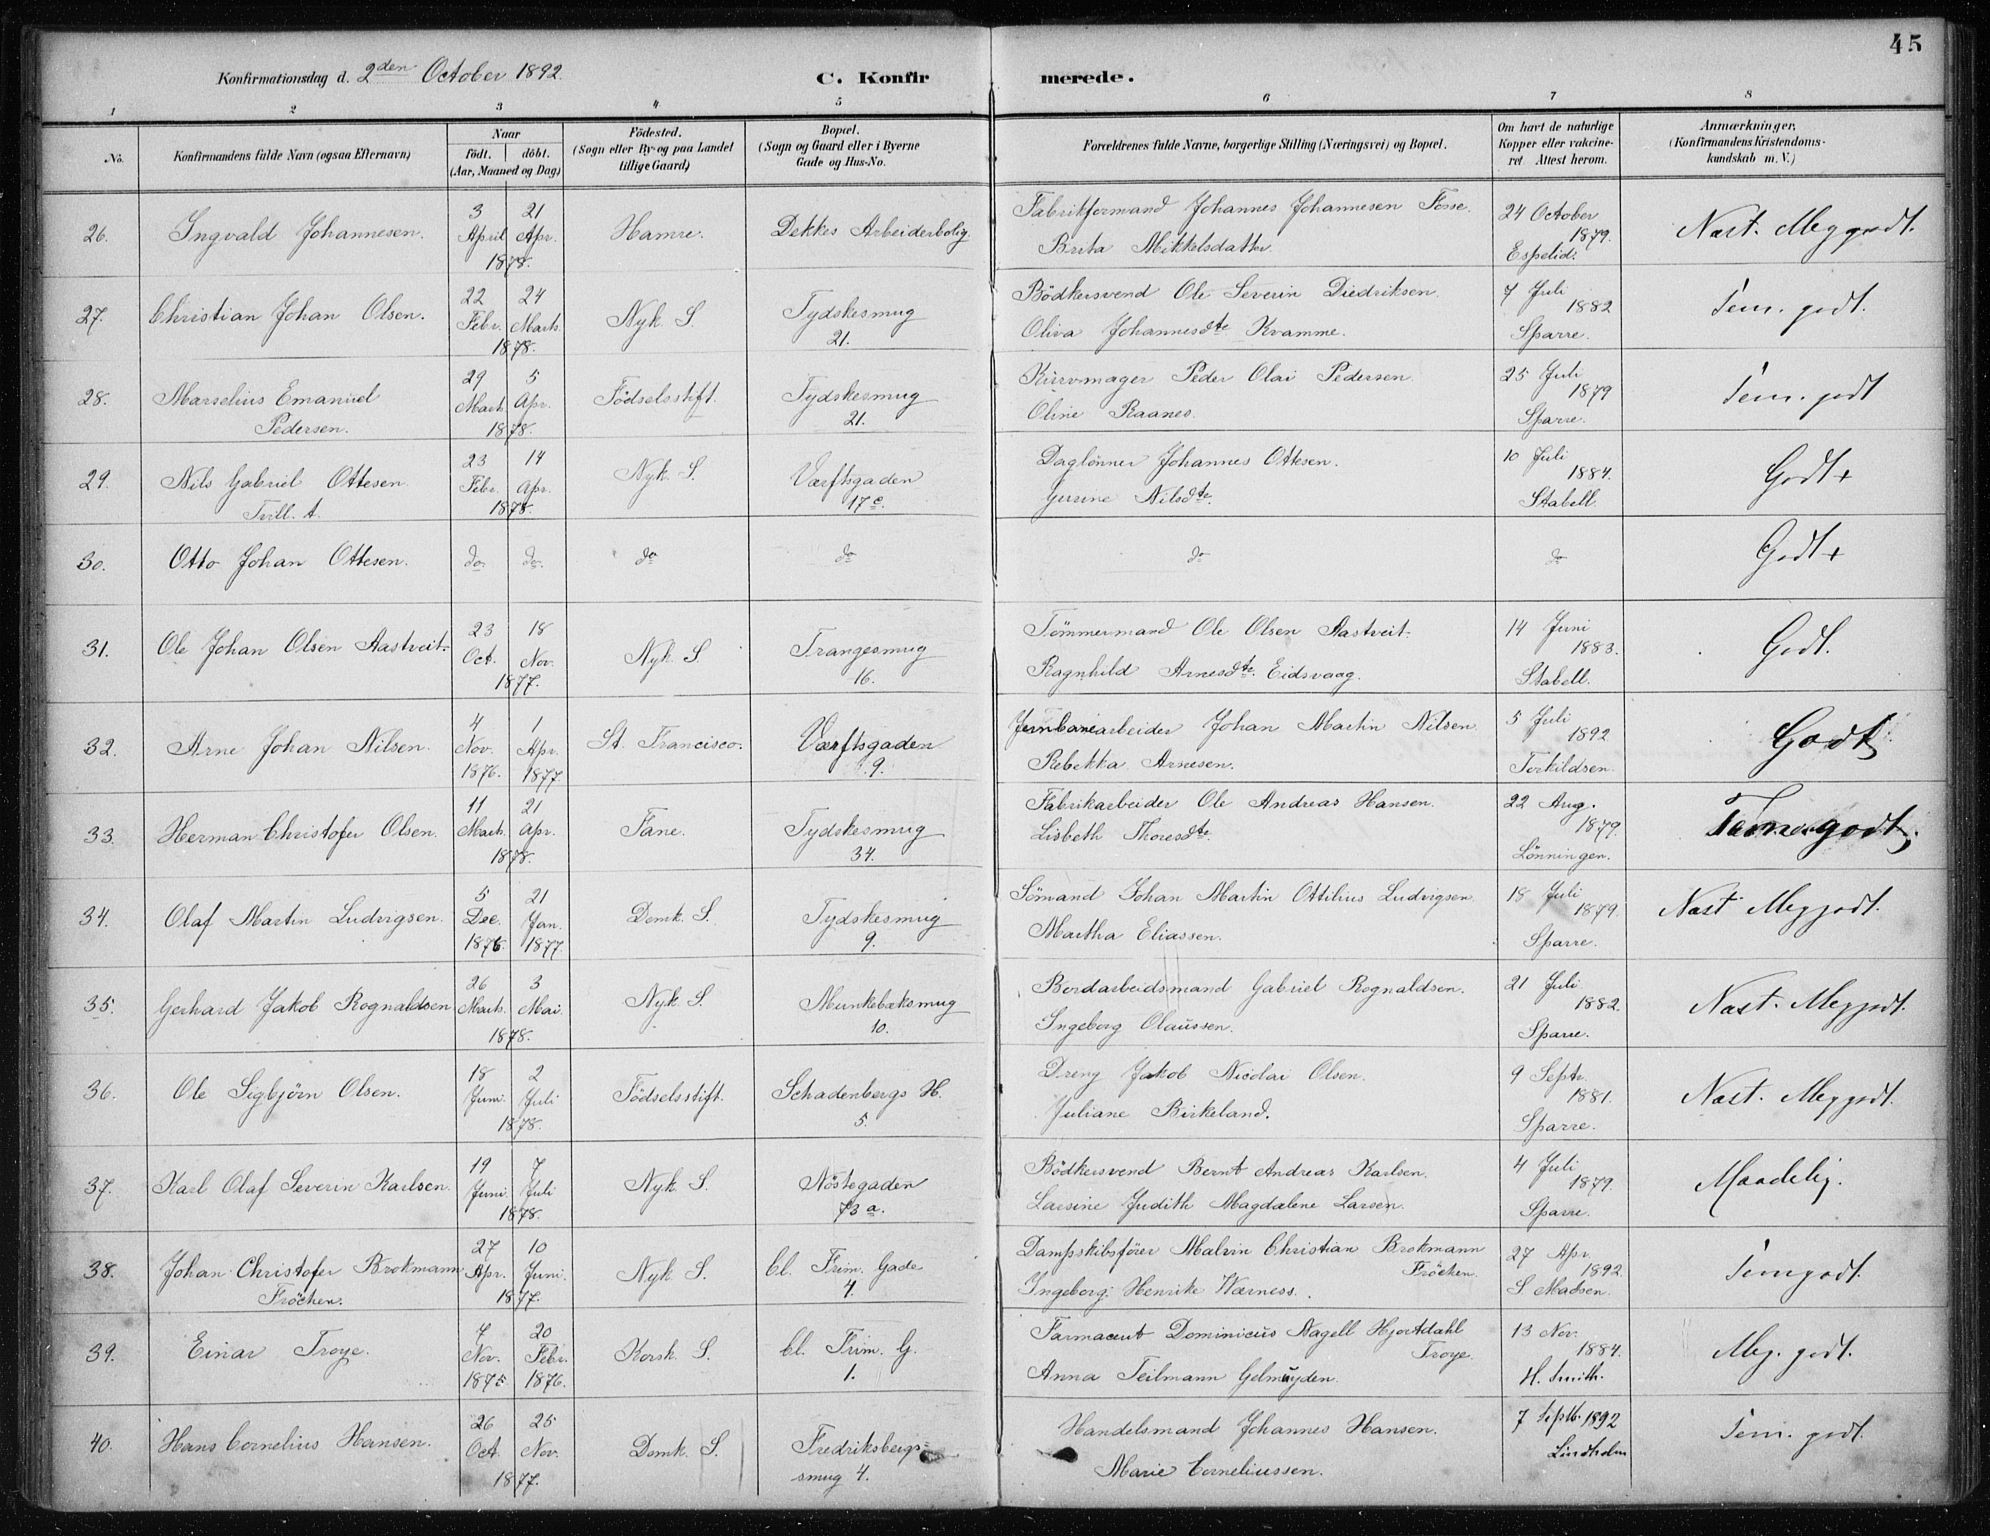 45
Konfirmationsdag d. 2den October 1892.
C. Konfirmerede.
1 2 3 4 5 6 7 8
No.
Konfirmandens fulde Navn (ogsaa Efternavn)
Naar
födt. | döbt.
(Aar, Maaned og Dag)
Födested.
(Sogn eller By- og paa Landet
tillige Gaard)
Bopæl.
(Sogn og Gaard eller i Byerne
Gade og Hus-No.
Forældrenes fulde Navne, borgerlige Stilling (Næringsvei) og Bopæl.
Om havt de naturlige
Kopper eller vakcine-
ret Attest herom.
Anmærkninger.
(Konfirmandens Kristendoms-
kundskab m. V.)
26. Ingvald Johannesen. 3 April 21 Apr. 1878. Hamre. Dekkes Arbeiderbolig
Fabrikformand Johannes Johannesen Fosse.
Brita Mikkelsdatter.
24 October 1879. Espelid. Næst. Meg godt.
27. Christian Johan Olsen. 22 Febr. 24 Marts. 1878. Nyk. S. Tydskesmug 21.
Bödkersvend Ole Severin Diedriksen.
Oliva Johannesdtr Kvamme.
7 Juli 1882 Sparre. Tem. godt.
28. Marselius Emanuel Pedersen. 29 Marts. 5 Apr. 1878. Födselsstift. Tydskesmug 21.
Kurvmager Peder Olai Pedersen.
Oline Raanes.
25 Juli 1879 Sparre. Tem. godt
29. Nils Gabriel Ottesen. Tvill. A. 23 Febr. 14 Apr. 1878. Nyk. S. Værftsgaden 17c.
Daglönner Johannes Ottesen.
Gurine Nilsdtr.
10 Juli 1884. Stabell. Godt +
30. Otto Johan Ottesen. do. do. do do do do Godt +
31. Ole Johan Olsen Aastveit. 23 Oct. 18 Nov. 1877. Nyk. S Trangesmug 16.
Tömmermand Ole Olsen Aastveit.
Ragnhild Arnesdtr. Eidsvaag.
14 Juni 1883. Stabell. Godt.
32. Arne Johan Nilsen. 4 Nov. 1876. 1 Apr. 1877. St. Francisco. Værftsgaden 9.
Jernbanearbeider Johan Martin Nilsen
Rebekka Arnesen.
5 Juli 1892 Terkildsen. Godt
33. Herman Christofer Olsen. 11 Marts. 21 Apr. 1878. Fane. Tydskesmug 34.
Fabrikarbeider Ole Andreas Hansen.
Lisbeth Thoresdtr
22 Aug. 1879. Lönningen. Tem. godt.
34. Olaf Martin Ludvigsen. 5 Dec. 1876. 21 Jan. 1877. Domk. S. Tydskesmug 9.
Sömand Johan Martin Ottilius Ludvigsen
Martha Eliassen.
18 Juli 1879. Sparre. Næst Meg godt.
35. Gerhard Jakob Rognaldsen 26 Marts. 3 Mai. 1878. Nyk. S. Munkebæksmug 10.
Bordarbeidsmand Gabriel Rognaldsen.
Ingeborg Olaussen.
21 Juli 1882. Sparre. Næst. Meg godt.
36. Ole Sigbjörn Olsen. 18 Juni. 2 Juli 1878. Födselsstift. Schadenbergs H. 5.
Dreng Jakob Nicolai Olsen.
Juliane Birkeland.
9 Septr. 1881. Sparre. Næst. Meg godt.
37. Karl Olaf Severin Karlsen. 19 Juni. 7 Juli 1878. Nyk. S. Nöstegaden 73 a.
Bödkersvend Bernt Andreas Karlsen.
Larsine Judith Magdalene Larsen.
4 Juli 1879. Sparre. Maadelig.
38. Johan Christofer Brokmann Fröchen. 27 Apr. 10 Juni. 1877. Nyk. S. Cl. Frim. Gade 4.
Dampskibsförer Malvin Christian Brokmann Fröchen.
Ingeborg Henrike Wærness.
27 Apr. 1892. S Madsen. Tem godt.
39. Einar Troye. 7 Nov. 1875 20 Febr. 1876. Korsk. S. Cl. Frim. G. 1.
Farmaceut Dominicus Nagell Hjortdahl Troye
Anna Teilmann Gelmuyden.
13 Nov. 1884. H. Smith. Meg. godt.
40. Hans Cornelius Hansen. 26 Oct. 25 Nov. 1877. Domk. S. Fredriksbergs- smug 4.
Handelsmand Johannes Hansen.
Marie Corneliussen.
7 Septb. 1892 Lindholm Tem. godt.